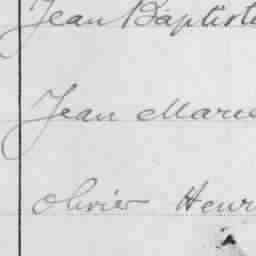 Jean Baptiste
Jean Marie
Olivier Henri